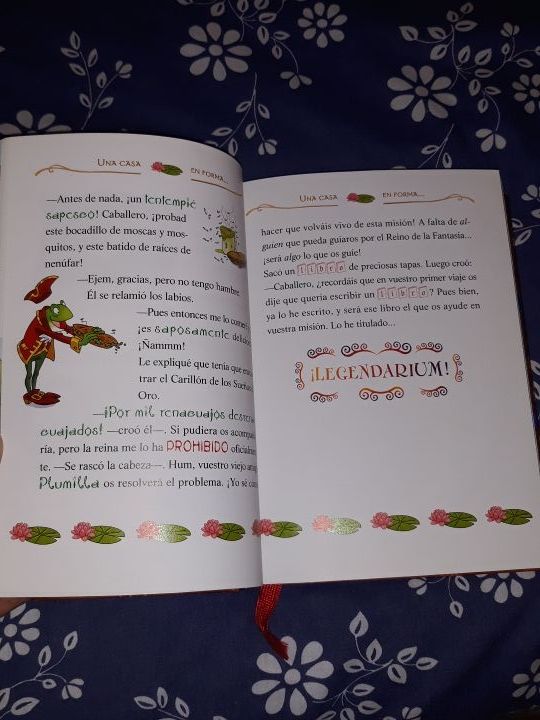 UNA CASA EN FORMA...
—Antes de nada, ¡un tentempié
saposo! Caballero, ¡probad
este bocadillo de moscas y mos-
quitos, y este batido de raíces de
nenúfar!
—Ejem, gracias, pero no tengo hambre.
Él se relamió los labios.
—Pues entonces me lo como
¡es saposamente
¡Ñammm!
Le expliqué que tenía que
trar el Carillón de los
Oro.
—¡Por mil renacuajos
cuajados! —croó él—. Si pudiera os
ría, pero la reina me lo ha PROHIBIDO
te. —Se rascó la cabeza—. Hum, vuestro viejo
Plumilla os resolverá el problema. ¡Yo sé
UNA CASA EN FORMA...
hacer que volváis vivo de esta misión! A falta de al-
guien que pueda guiaros por el Reino de la Fantasía...
¡será algo lo que os guíe!
Sacó un libro de preciosas tapas. Luego croó:
—Caballero, ¿recordáis que en vuestro primer viaje os
dije que quería escribir un libro? Pues bien,
ya lo he escrito, y será ese libro el que os ayude en
vuestra misión. Lo he titulado...
¡LEGENDARIUM!